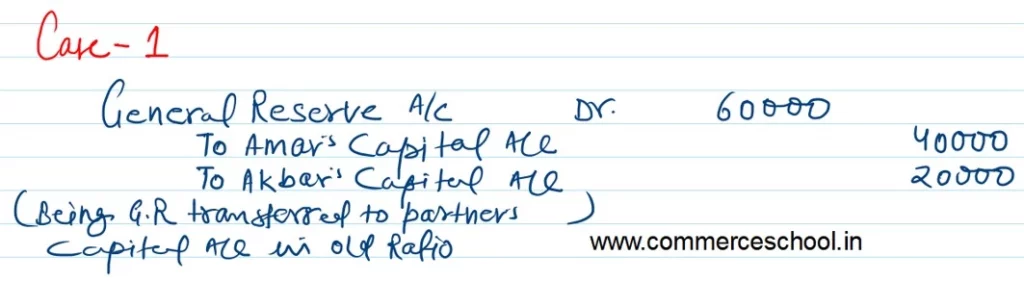 Case - 1
General Reserve A/c Dr. 60000
To Amar's Capital A/c 40000
To Akbar's Capital A/c 20000
(Being G.R transferred to partners )
Capital A/c in old Ratio
www.commerceschool.in